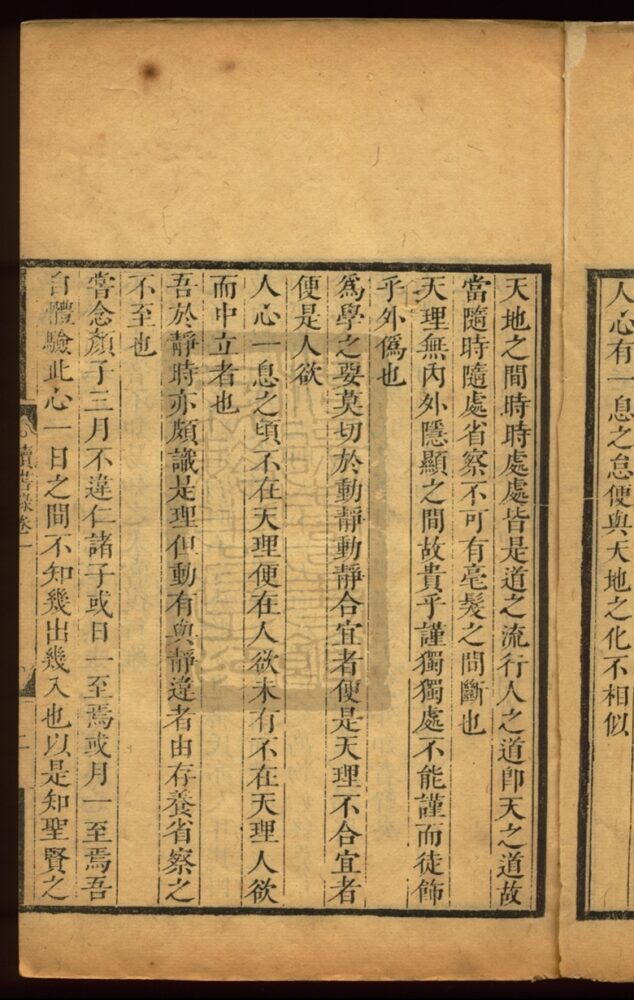 人心有一息之怠便與天地之化不相似
天地之間時時處處皆是道之流行人之道卽天之道故
當隨時隨處省察不可有毫髮之間斷也
天理無内外隱顯之間故貴乎謹獨獨處不能謹而徒飾
乎外僞也
爲學之要莫切於動靜動靜合宜者便是天理不合宜者
便是人欲
人心一息之頃不在天理便在人欲未有不在天理人欲
而中立者也
吾於靜時亦頗識是理但動有與靜違者由存養省察之
不至也
嘗念顏子三月不違仁諸子或日一至焉或月一至焉吾
自體驗此心一日之間不知幾出幾入也以是知聖賢之
讀書錄卷一
二